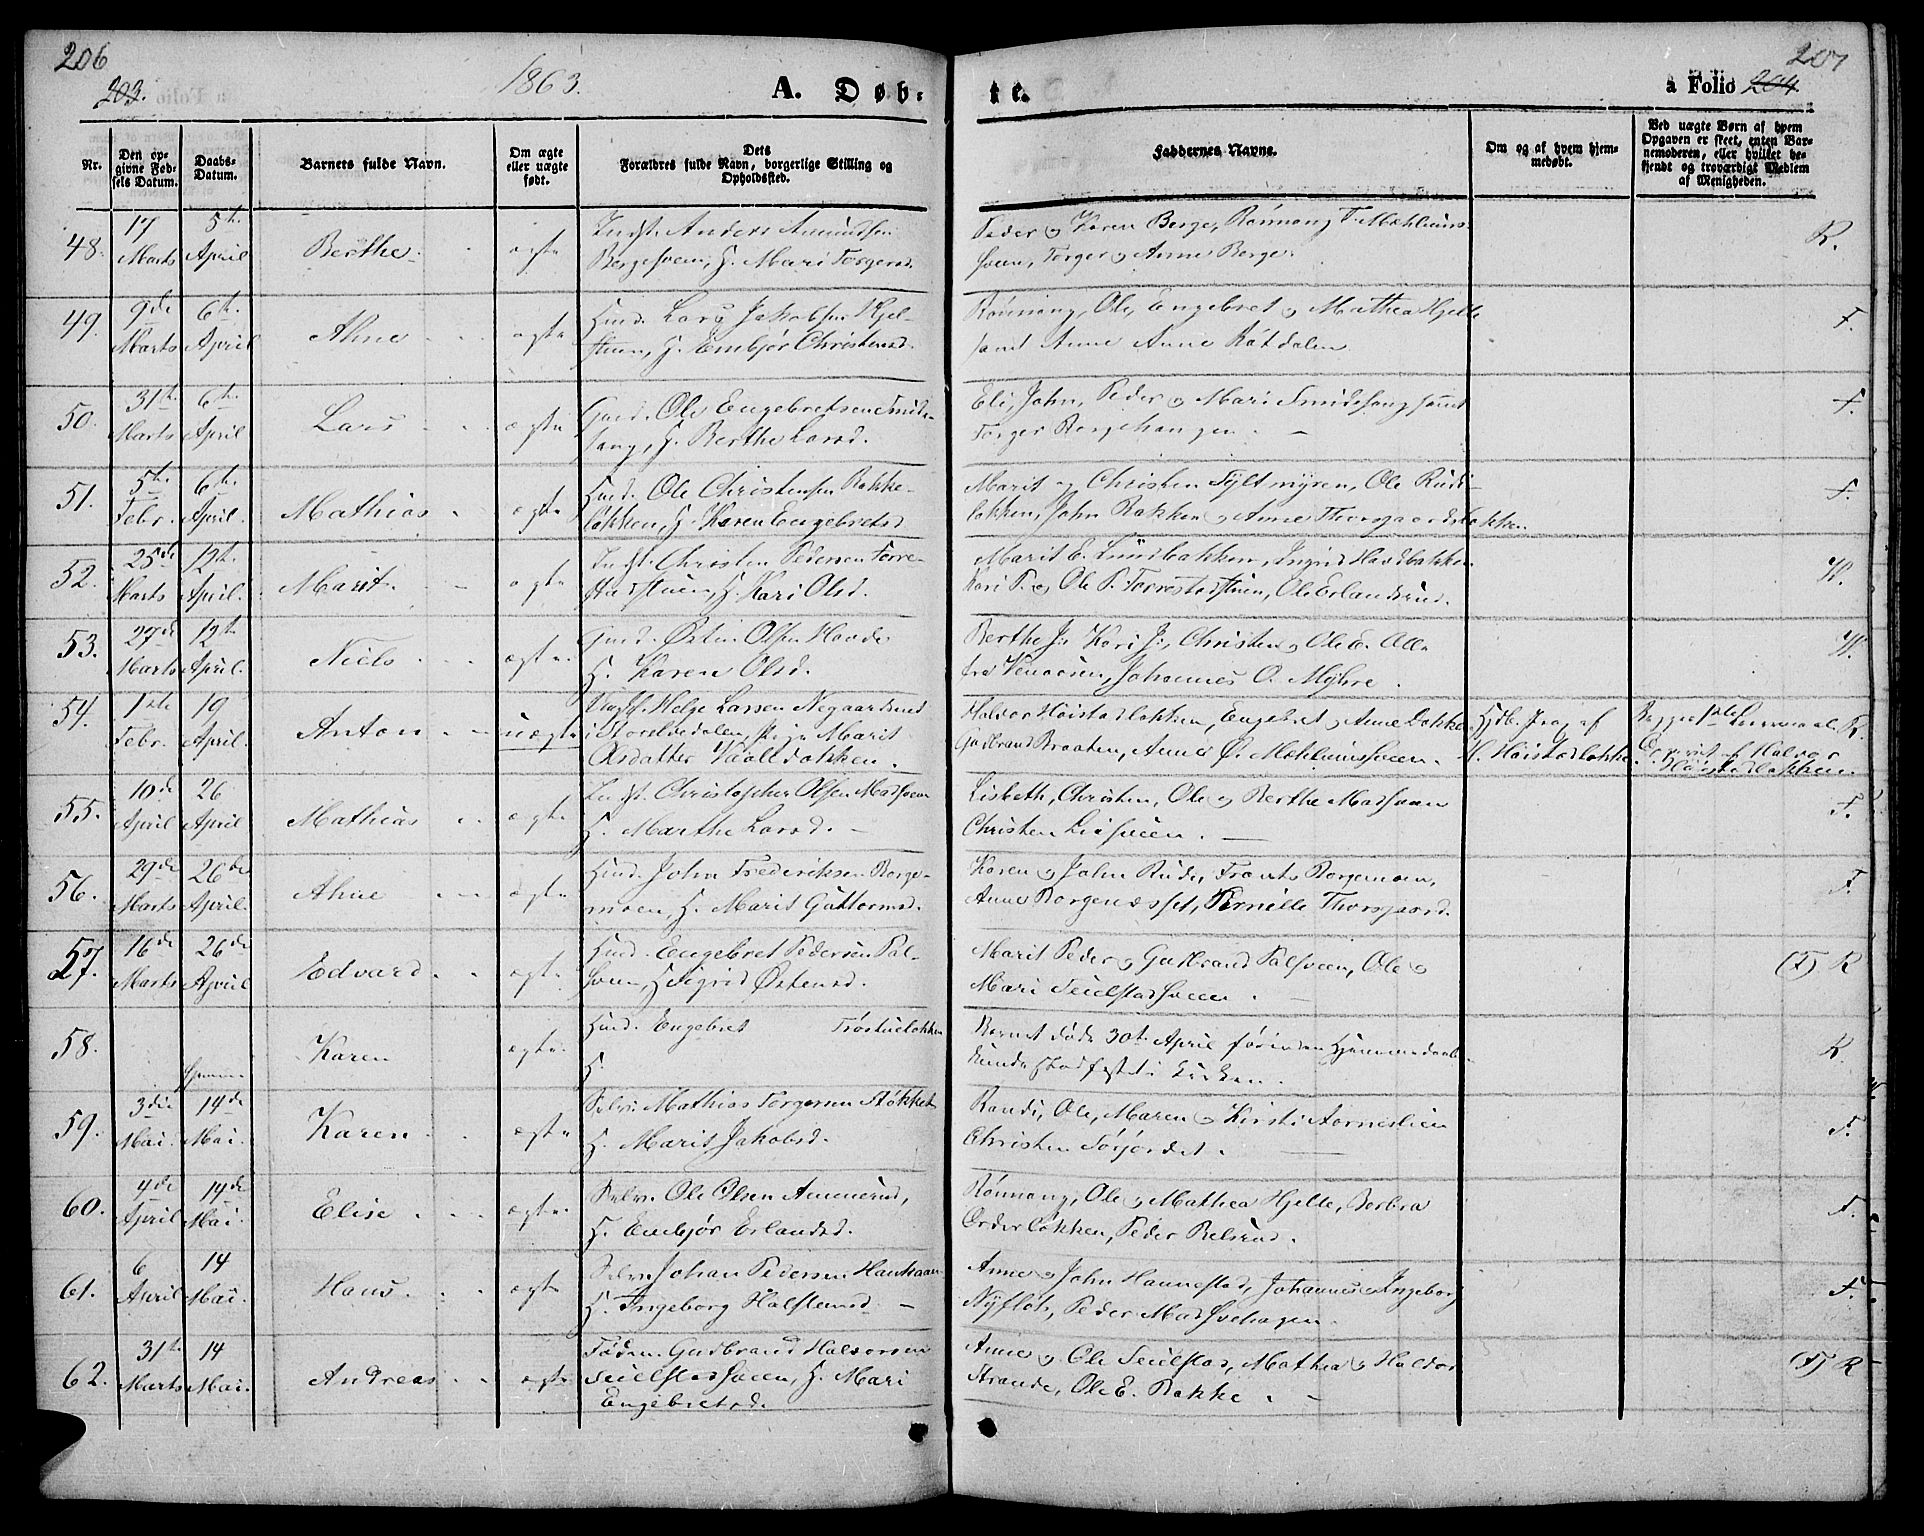 206
203.
1863.
A. Døb-
te.
207
a Folio 204
Nr.
Den op-
givne Fød-
sels Datum.
Daabs-
Datum.
Barnets fulde Navn.
Om ægte
eller uægte
født.
Dets
Forældres fulde Navn, borgerlige Stilling og
Opholdssted.
Faddernes Navne.
Om og af hvem hjem-
medøbt.
Ved uægte Børn af hvem
Opgaven er skeet, enten Bar-
nemoderen, eller hvilket be-
kjendt og troværdigt Medlem
af Menigheden.
48. 17 Marts 5te April Berthe. ægte Indst. Anders Amundsen
Bergesveen, H. Mari Torgersd.
Peder og Karen Berge, Rønnaug T. Mæhlums-
sveen, Torger og Anne Berge. R.
49. 9de Marts 6te April Ahne ægte Huusd. Lars Jakobsen Hjel-
stuen, H. Embjør Christensd.
Rønnaug, Ole, Engebret og Mathea Hjelle
samt Anne Rötdalen F.
50. 31te Marts 6te April Lars ægte Gaard. Ole Engebretsen Smide-
sang, H. Berthe Larsd.
Eli, John, Peder og Mari Smidesang samt
Torger Bergehaugen. F.
51. 5te Febr. 6te April. Mathias ægte Huusd. Ole Christensen Bakke-
løkken, H. Karen Engebretsd
Marit og Christen Syltmyren, Ole Rude-
løkken, John Bakken og Anne Thorsgaardsløkken F.
52. 25de Marts 12te April. Marit. ægte Indst. Christen Pedersen Torre-
stadstuen, H. Kari Olsd.
Marit E. Lundbakken, Ingrid Havdbakken
Kari P. og Ole P. Torrestadstuen, Ole Erlandsrud. W.
53. 27de Marts 12te April. Niels ægte. Gaard. Østen Olsen Hovde
H. Karen Olsd.
Berthe J:, Kari J:, Christen og Ole E. Alle
fra Venaasen, Johannes O. Myhre. W.
54. 1ste Febr. 19 April. Anton uægte Ungk. Helge Larsen Negaardsrud
i Storelvedalen, Pige Marit
Olsdatter Vaalløkken.
Halvor Høistadløkken, Engebret og Anne Løkke
Gudbrand Braaten, Anne Ø. Mæhlumsveen.
Hjdb. Jraq af
H. Høistadløkke.
af Halvor
Høistadløkken. R.
55. 10de April 26 April Mathias ægte Indst. Christopher Olsen Madsveen
H. Marthe Larsd.
Lisbeth, Christen, Ole og Berthe Madsveen
Christen Liesveen. F.
56. 29de Marts 26de April. Ahne ægte Huusd. John Frederiksen Borge-
moen, H. Marit Guttormsd.
Karen og John Rude, Frants Borgemoen,
Anne Borgenæsset, Pernille Thorsgaard. F.
57. 16de Marts 26de April Edvard ægte Huusd. Engebret Pedersen Pal-
sveen, H Sigrid Østensd.
Marit Peder og Gudbrand Palsveen, Ole og
Mari Seielstadsveen. (F) R
58. Karen ægte. Huusd. Engebret Tröstuelökken
H.
Barnet døde 30te April førinden Hjemmedaab
kunde stadfæstet i Kirken. R
59. 3die Mai. 14de Mai. Karen ægte Selv. Mathias Torgersen Stokket
H. Marit Jakobsd.
Randi, Ole, Maren og Kirsti Aarneslien
Christen Sørjordet. F.
60. 4de April 14de Mai. Elise ægte. Selv. Ole Olsen Ammerud,
H. Embjør Erlandsd.
Rønnaug, Ole og Mathea Hjelle, Barbra
Orderløkken, Peder Belsrud. F.
61. 6 April 14 Mai. Hans. ægte Selv. Johan Pedersen
H. Ingeborg Halstensd.
Anne og John Hannestad, Johannes og Ingeborg
Nyflot, Peder Madsvehagen. F.
62. 31te Marts 14 Mai. Andreas ægte Föder. Gudbrand Halvorsen
Seielstadsveen, H. Mari
Engebretsd.
Anne og Ole Seielstad, Mathea og Halvor
Strande, Ole E. Bakke. (F) R